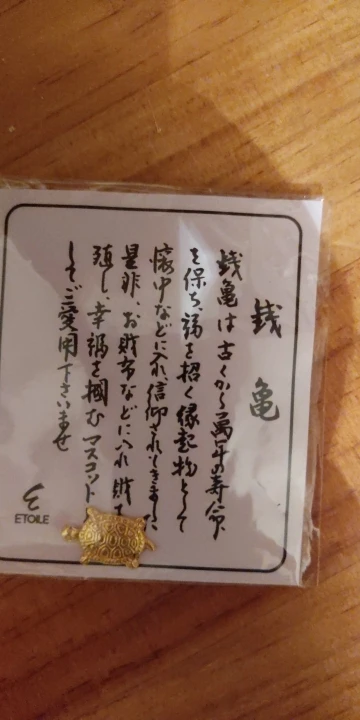 銭亀
銭亀は古くから萬年の寿命
を保ち福を招く縁起物として
懐中などに入れ信仰されてきました
是非、お財布などに入れ財を
殖し、幸福を掴むマスコットと
してご愛用下さいませ
ETOILE